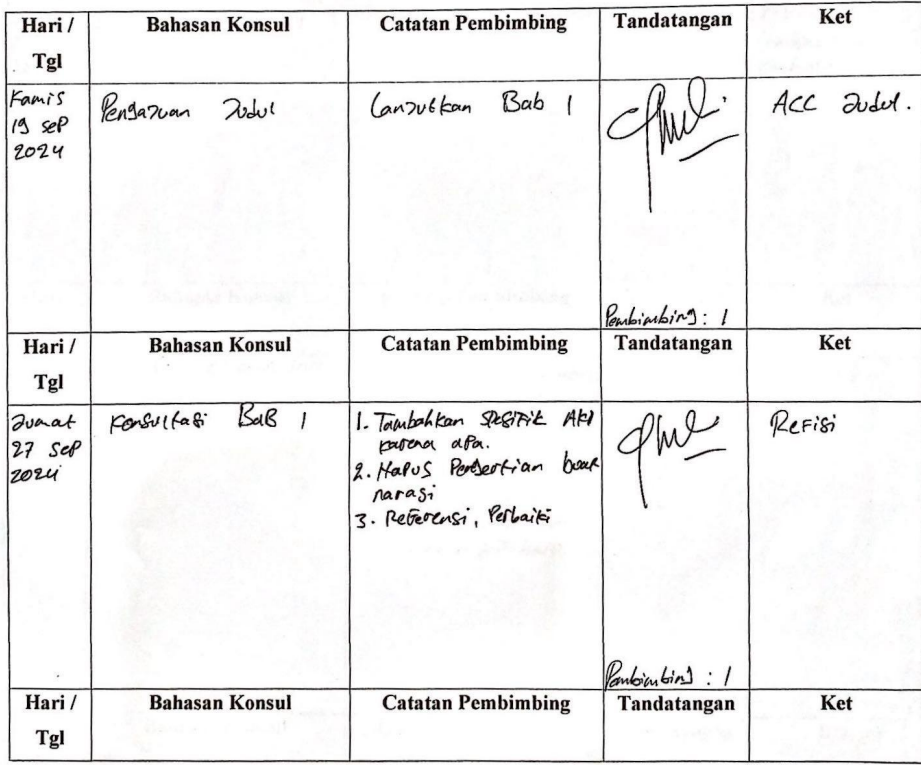 Hari / Tgl Bahasan Konsul Catatan Pembimbing Tandatangan Ket
Kamis 19 sep 2024
Pengajuan Judul
Lanjutkan Bab 1
Pembimbing : 1
ACC Judul.
Hari / Tgl Bahasan Konsul Catatan Pembimbing Tandatangan Ket
Jumat 27 Sep 2024
Konsultasi BaB 1
1. Tambahkan spesifik AKI
karena apa.
2. Hapus Pengertian buat
narasi
3. Referensi, Perbaiki
Pembimbing : 1
Refisi
Hari / Tgl Bahasan Konsul Catatan Pembimbing Tandatangan Ket